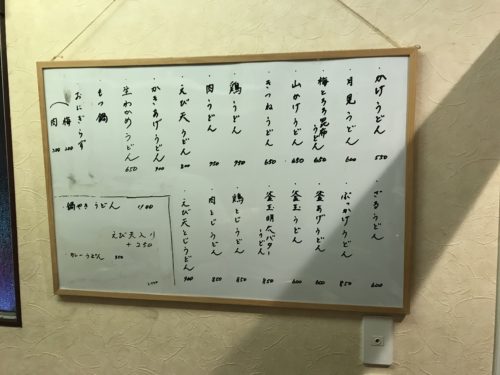 ・かけうどん 550
・月見うどん 600
・梅とろろ昆布うどん 650
・山かけうどん 650
・きつねうどん 650
・鶏うどん 750
・肉うどん 750
・えび天うどん 800
・かきあげうどん 700
・生わかめうどん 650
・もつ鍋
・おにぎらず
梅 200
肉 300
・ざるうどん 600
・ぶっかけうどん 850
・釜あげうどん 600
・釜玉うどん 650
・釜玉明太バターうどん 850
・鶏とじうどん 850
・肉とじうどん 850
・えび天とじうどん 900
・鍋やきうどん 1100
えび天入り
+250
カレーうどん 850